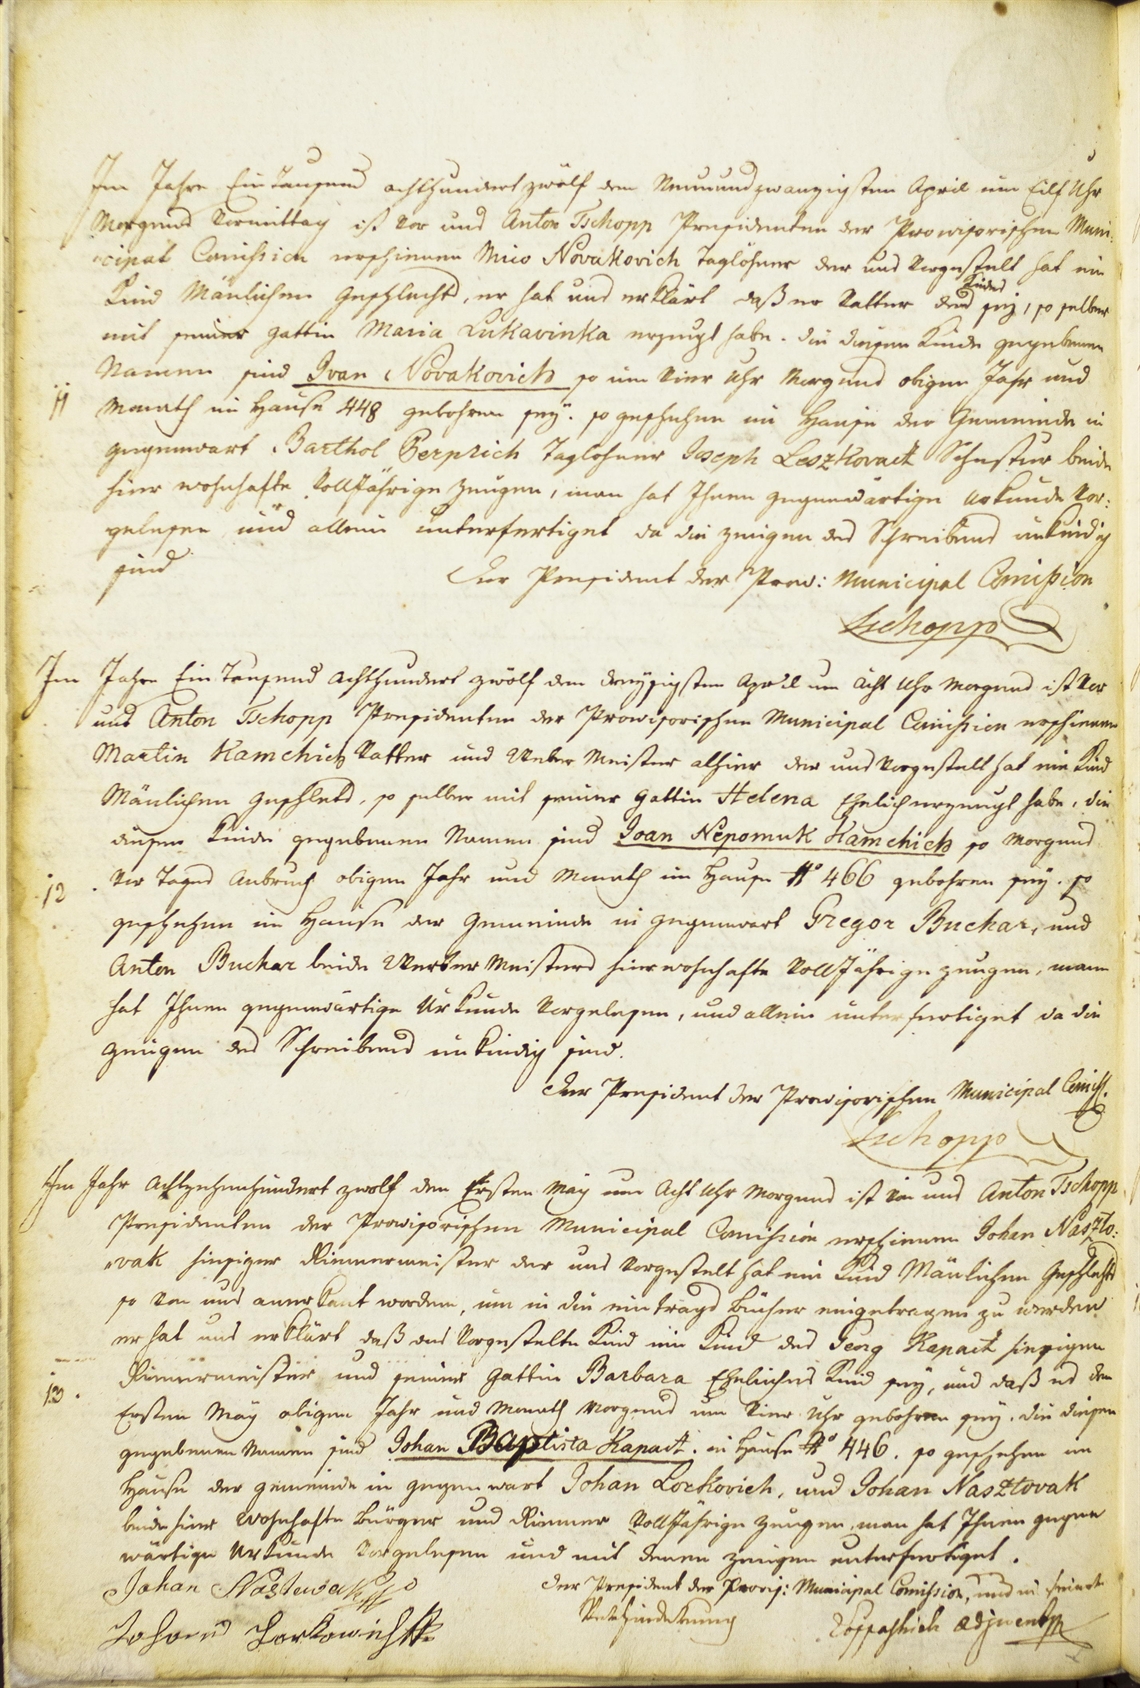 Im Jahre Ein Tausend achthundert zwölf den Neunundzwanzigsten April um Eilf Uhr
Morgens Vormittag ist vor uns Anton Tschopp Presidenten der Provisorischen Muni:
cipal Comission erschienen Mico Novakovich Taglöhner der uns vorgestelt hat ein
Kind Mänlichen Geschlechts, er hat uns erklärt daß er Vatter des Kindes sey, so selber
mit seiner Gattin Maria Lukavinka erzeugt habe. die diesen Kinde gegebenen
Namen sind Ivan Novakovich so um Vier Uhr Morgens obigen Jahr und
11 Monath im Hause 448 gebohren sey. so geschehen im Hause der Gemeinde in
gegenwart Barthol Taglöhner Joseph Leszkovack Schuster beide
hier wohnhafte Volljährige Zeugen, man hat Ihnen gegenwärtige Urkunde vor:
gelesen und allein unterfertiget da die Zeugen des Schreibens unkindig
sind
Der President der Prov: Municipal Comission
Tschopp
Im Jahre Ein Tausend achthundert zwölf den dreyssigsten April um Acht Uhr Morgens ist vor
uns Anton Tschopp Presidenten der Provisorischen Municipal Comission erschienen
Martin Kamchich Vatter und Weber Meister alhier der uns vorgestelt hat ein Kind
Mänlichen Geschlechts, so selber mit seiner Gattin Helena Ehelich erzeugt habe, die
diesen Kinde gegebenen Namen sind Joan Nepomuk Kamchich so Morgens
12 vor Tages Anbruch obigen Jahr und Monath im Hause No 466 gebohren sey. so
geschehen im Hause der Gemeinde in gegenwart Gregor Buchar, und
Anton Buchar beide Weber Meisters hier wohnhafte Volljährige Zeugen, man
hat Ihnen gegenwärtige Urkunde vorgelesen, und allein unterfertiget da die
Zeugen des Schreibens unkindig sind.
Der President der Provisorischen Municipal Comiss.
Tschopp
Im Jahr Achtzehenhundert zwölf den Ersten May um Acht Uhr Morgens ist vor uns Anton Tschopp
Presidenten der Provisorischen Municipal Comission erschienen Johan Naszto:
vak hiesiger Riemermeister der uns vorgestelt hat ein Kind Mänlichen Geschlechts
so von uns anerkant worden, um in die eintrags Bücher eingetragen zu werden
er hat uns erklärt daß das vorgestelte Kind ein Kind des Georg Kapact hiesigen
13. Riemermeister und seiner Gattin Barbara Eheliches Kind sey, und daß es den
Ersten May obigen Jahr und Monath Morgens um Vier Uhr gebohren sey. die diesen
gegebenen Namen sind Johan Baptista Kapact. im Hause No 446. so geschehen im
Hause der Gemeinde in gegenwart Johan Lorkovich, und Johan Nasztovak
beide hier wohnhafte Bürger und Riemer Volljährige Zeugen, man hat Ihnen gegen
wärtige Urkunde vorgelesen und mit denen Zeugen unterfertiget.
Johan Nastowak
Der President der Provis: Municipal Comission, und in seiner
Verhinderung
Johann Lorkowich
Adjunct